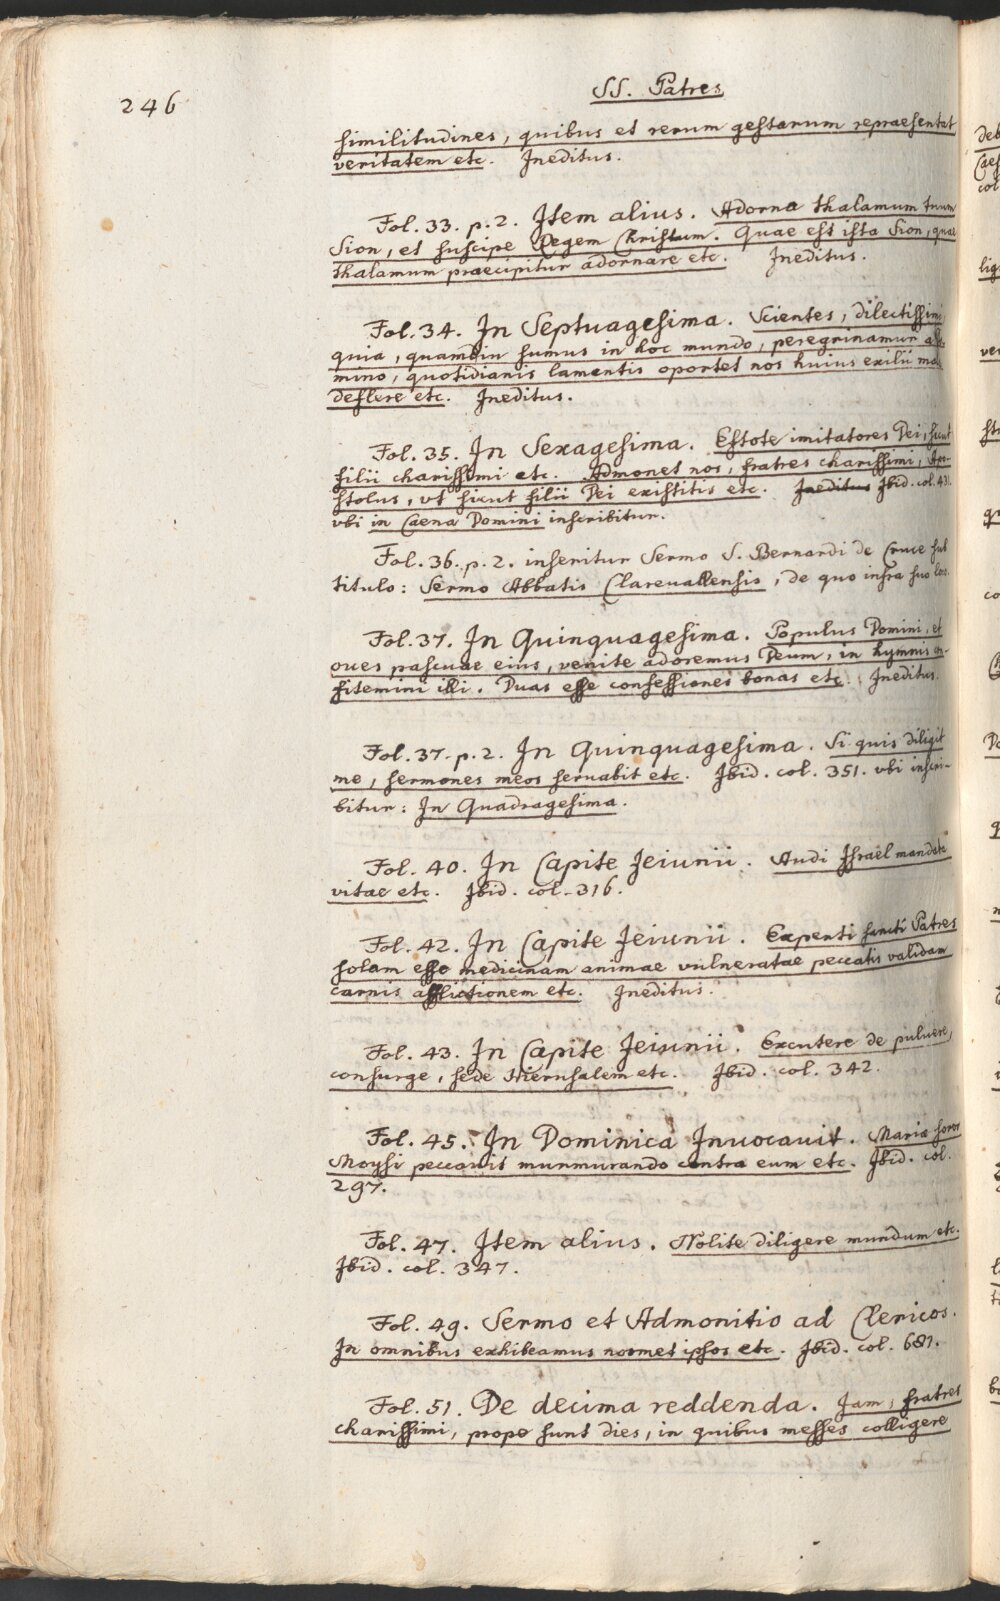 246
SS. Patres
similitudines, quibus et rerum gestarum repraesentat
veritatem etc. Ineditus.
Fol. 33. p. 2. Item alius. Adorna thalamum tuum
Sion, et suscipe Regem Christum. Quae est ista Sion, quae
thalamum praecipitur adornare etc. Ineditus.
Fol. 34. In Septuagesima. Scientes, dilectissimi,
quia, quamdiu sumus in hoc mundo, peregrinamur a
mino, quotidianis lamentis oportet nos huius exilii
deflere etc. Ineditus.
Fol. 35. In Sexagesima. Estote imitatores Dei, sicut
filii charissimi etc. Admonet nos, fratres charissimi, Apo-
stolus, vt sicut filii Dei existitis etc. Ineditus Ibid. col. 431.
vbi in Caena Domini inscribitur.
Fol. 36. p. 2. inseritur Sermo S. Bernardi de Cruce sub
titulo: Sermo Abbatis Clareuallensis, de quo infra suo loco.
Fol. 37. In Quinquagesima. Populus Domini, et
oues pascuae eius, venite adoremus Deum, in hymnis con-
fitemini illi. Duas esse confessiones bonas etc. Ineditus.
Fol. 37. p. 2. In Quinquagesima. Si quis diligit
me, sermones meos seruabit etc. Ibid. col. 351. vbi inscri-
bitur: In Quadragesima.
Fol. 40. In Capite Jeiunii. Audi Israël mandata
vitae etc. Ibid. col. 316.
Fol. 42. In Capite Jeiunii. Experti sancti Patres
solam esse medicinam animae vulneratae peccatis validam
carnis afflictionem etc. Ineditus.
Fol. 43. In Capite Jeiunii. Excutere de puluere,
consurge, sede Hierusalem etc. Ibid. col. 342.
Fol. 45. In Dominica Inuocauit. Maria soror
Moysi peccauit murmurando contra eum etc. Ibid. col.
297.
Fol. 47. Item alius. Nolite diligere mundum etc.
Ibid. col. 347.
Fol. 49. Sermo et Admonitio ad Clericos.
In omnibus exhibeamus nosmet ipsos etc. Ibid. col. 681.
Fol. 51. De decima reddenda. Jam, fratres
charissimi, prope sunt dies, in quibus messes colligere